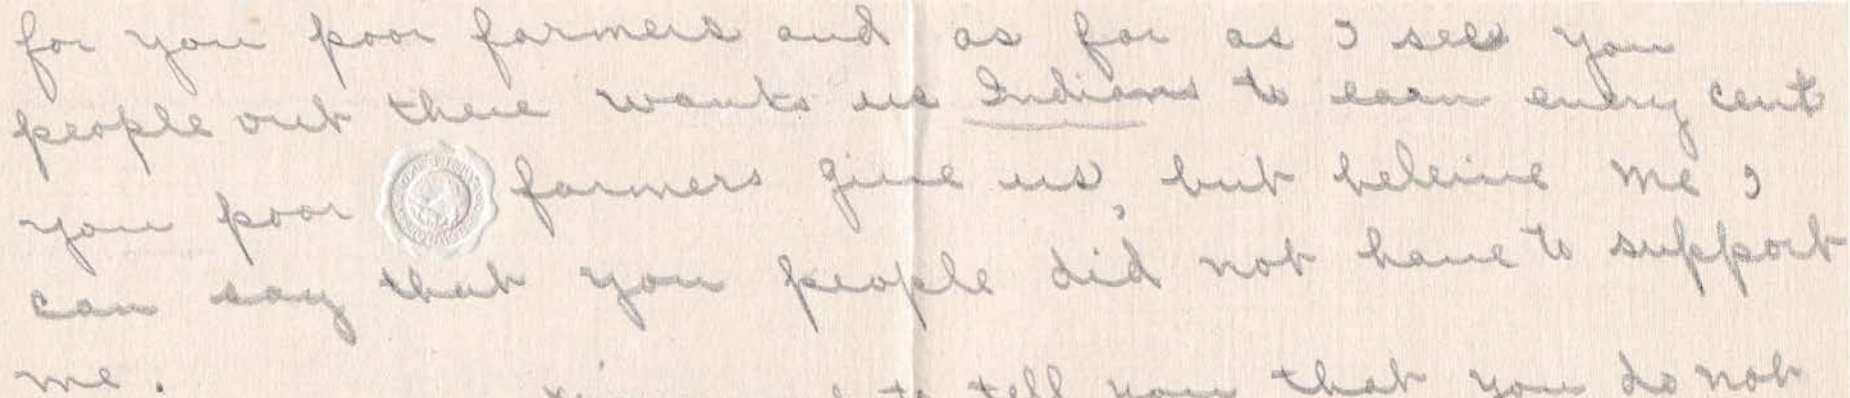 for you poor farmers and as far as I sees you
people out there wants us Indians to earn every cent
you poor farmers give us, but beleive me I
can say that you people did not have to support
me.
to tell you that you do not